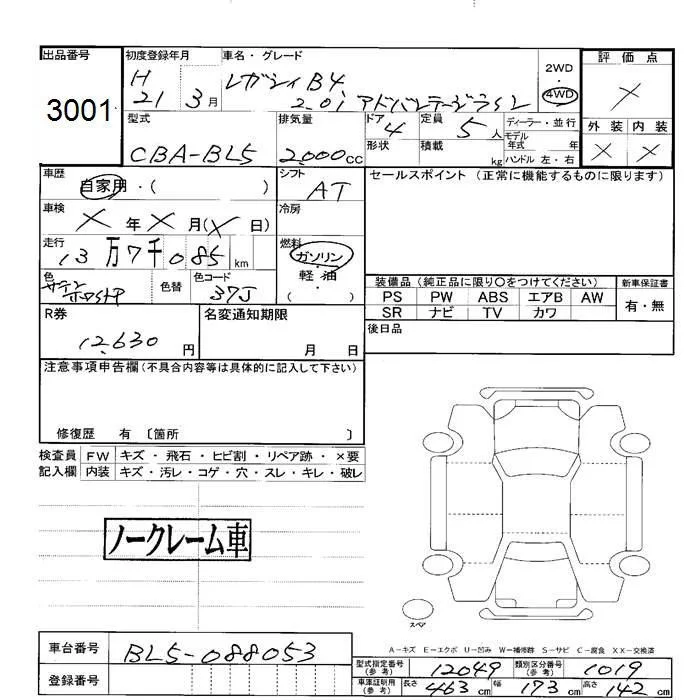 出品番号
3001
初度登録年月
H 21 3月
車名・グレード
レガシィB4
2.0i アドバンテージライン
2WD
4WD
評価点
×
外装 内装
× ×
型式
CBA-BL5
排気量
2000cc
ドア 4
形状
定員 5人
積載 kg
ディーラー・並行
モデル年式 年
ハンドル 左・右
車歴
自家用・( )
シフト
AT
セールスポイント (正常に機能するものに限ります)
車検
× 年 × 月(× 日)
冷房
走行
13万7千085km
燃料
ガソリン
軽・油
( )
色
サテンホワイトP
色替
色コード
37J
装備品 (純正品に限り○をつけてください)
PS PW ABS エアB AW
SR ナビ TV カワ
新車保証書
有・無
R券
12,630円
名変通知期限
月 日
後日品
注意事項申告欄(不具合内容等は具体的に記入して下さい)
修復歴 有 〔箇所 〕
検査員 FW キズ・飛石・ヒビ割・リペア跡・×要
記入欄 内装 キズ・汚レ・コゲ・穴・スレ・キレ・破レ
ノークレーム車
スペア
A-キズ E-エクボ U-凹み W-補修跡 S-サビ C-腐食 XX-交換済
車台番号
BL5-088053
登録番号
型式指定番号(参考)
12049
類別区分番号(参考)
1019
車庫証明用(参考)
長さ 463cm 幅 173cm 高さ 142cm